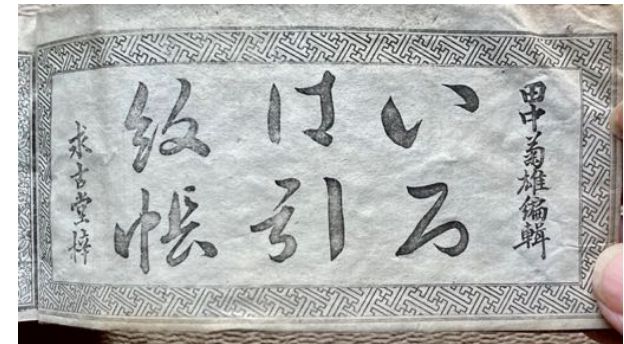 田中菊雄編輯
いろ
は引
紋帳
求古堂梓